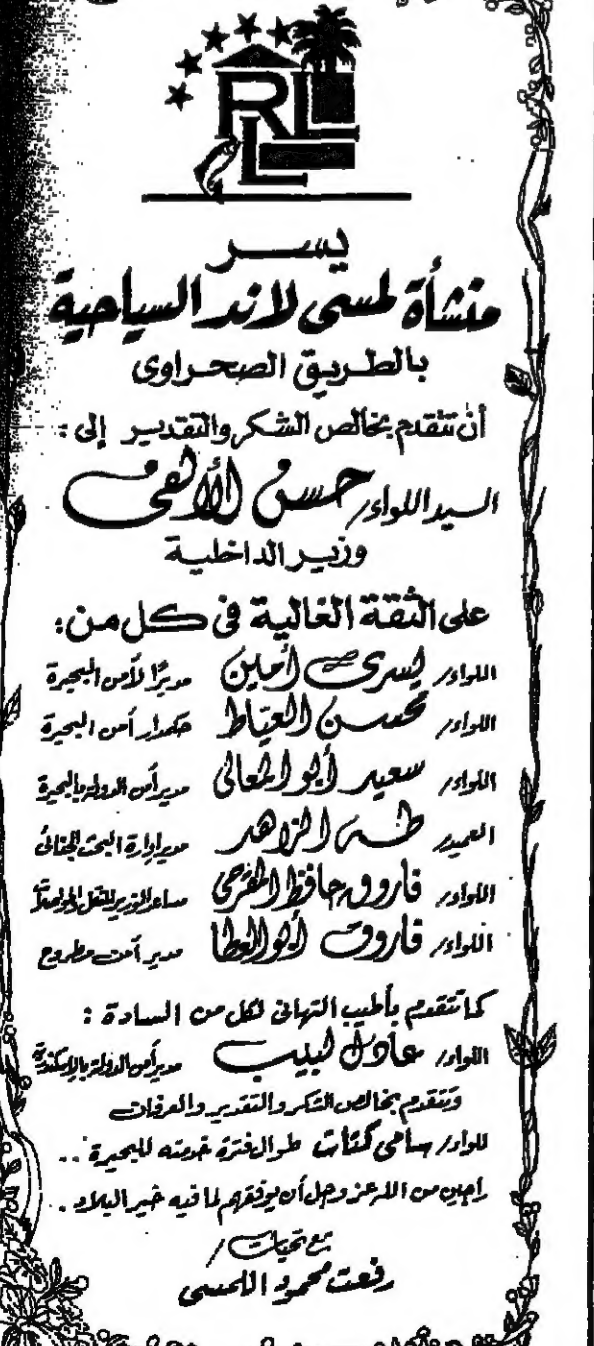 RLL
يســـر
منشأة لمسى لاند السياحية
بالطريق الصحراوى
أن تتقدم بخالص الشكر والتقدير إلى :
السيد اللواء/ حسن الألفى
وزير الداخلية
على الثقة الغالية فى كل من :
اللواء/ يسرى أمين مديرًا لأمن البحيرة
اللواء/ محسن العياط حكمدار أمن البحيرة
اللواء/ سعيد أبو المعالى مدير أمن الدولة بالبحيرة
العميد/ طه الزاهد مدير إدارة البحث الجنائى
اللواء/ فاروق حافظ المقرحى مساعد الوزير للنقل والمواصلات
اللواء/ فاروق أبو العطا مدير أمن مطروح
كما تتقدم بأطيب التهانى لكل من السادة :
اللواء/ عادل لبيب مدير أمن الدولة بالإسكندرية
وتتقدم بخالص الشكر والتقدير والعرفان
للواء/ سامى طوال فترة خدمته للبحيرة ..
راجين من الله عز وجل أن يوفقهم لما فيه خير البلاد .
مع تحيات /
رفعت محمود اللمسى